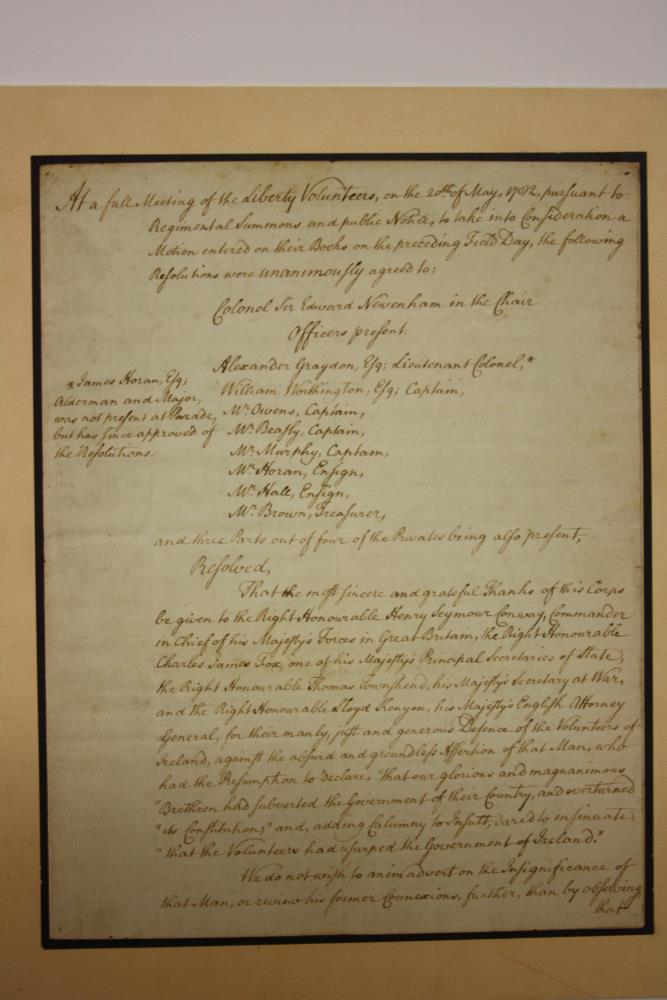 At a full Meeting of the Liberty Volunteers, on the 20th of May, 1782, pursuant to
Regimental Summons and public Notice, to take into Consideration a
Motion entered on their Books on the preceding Field Day, the following
Resolutions were unanimously agreed to:
Colonel Sir Edward Newenham in the Chair.
Officers present.
Alexander Graydon, Esq; Lieutenant Colonel,*
William Worthington, Esq; Captain,
Mr. Owens, Captain,
Mr. Beasly, Captain,
Mr. Murphy, Captain,
Mr. Horan, Ensign,
Mr. Hall, Ensign,
Mr. Brown, Treasurer,
*James Horan, Esq;
Alderman and Major,
was not present at Parade,
but has since approved of
the Resolutions.
and three Parts out of four of the Privates being also present,
Resolved,
That the most sincere and grateful Thanks of this Corps
be given to the Right Honourable Henry Seymour Conway, Commander
in Chief of his Majesty's Forces in Great Britain, the Right Honourable
Charles James Fox, one of his Majesty's Principal Secretaries of State,
the Right Honourable Thomas Townshend, his Majesty's Secretary at War,
and the Right Honourable Lloyd Kenyon, his Majesty's English Attorney
General, for their manly, just and generous Defence of the Volunteers of
Ireland, against the absurd and groundless Assertion of that Man, who
had the Presumption to Declare, "that our glorious and magnanimous
"Brethren had subverted the Government of their Country, and overturned
"its Constitution;" and, adding Calumny to Insult, dared to insinuate
"that the Volunteers had usurped the Government of Ireland."
We do not wish to animadvert on the Insignificance of
that Man, or review his former Connexions, further, than by observing,
that